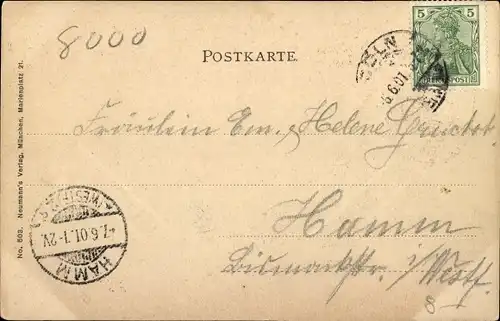 8000
POSTKARTE.
5 5
REICHSPOST
CÖLN
6.6.01
Fräulein Em. & Helene
Hamm
Bismarckstr. i/Westf.
HAMM (WESTF.)
7.6.01.1-2V.
No. 502. Neumann's Verlag, München, Marienplatz 21.
8